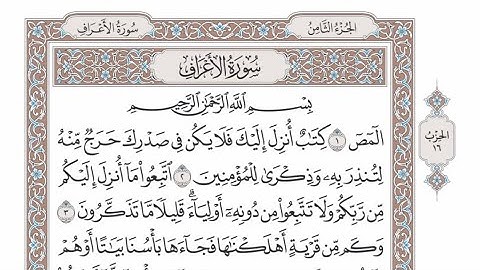 سُورَةُ الأَعْرَافِ
الجُزْءُ الثَّامِنُ
سُورَةُ الأَعْرَافِ
بِسْمِ اللَّهِ الرَّحْمَٰنِ الرَّحِيمِ
الٓمٓصٓ ١ كِتَٰبٌ أُنزِلَ إِلَيْكَ فَلَا يَكُن فِى صَدْرِكَ حَرَجٌ مِّنْهُ
لِتُنذِرَ بِهِۦ وَذِكْرَىٰ لِلْمُؤْمِنِينَ ٢ ٱتَّبِعُوا۟ مَآ أُنزِلَ إِلَيْكُم
مِّن رَّبِّكُمْ وَلَا تَتَّبِعُوا۟ مِن دُونِهِۦٓ أَوْلِيَآءَ ۗ قَلِيلًا مَّا تَذَكَّرُونَ ٣
وَكَم مِّن قَرْيَةٍ أَهْلَكْنَٰهَا فَجَآءَهَا بَأْسُنَا بَيَٰتًا أَوْ هُمْ
الحِزْبُ
١٦